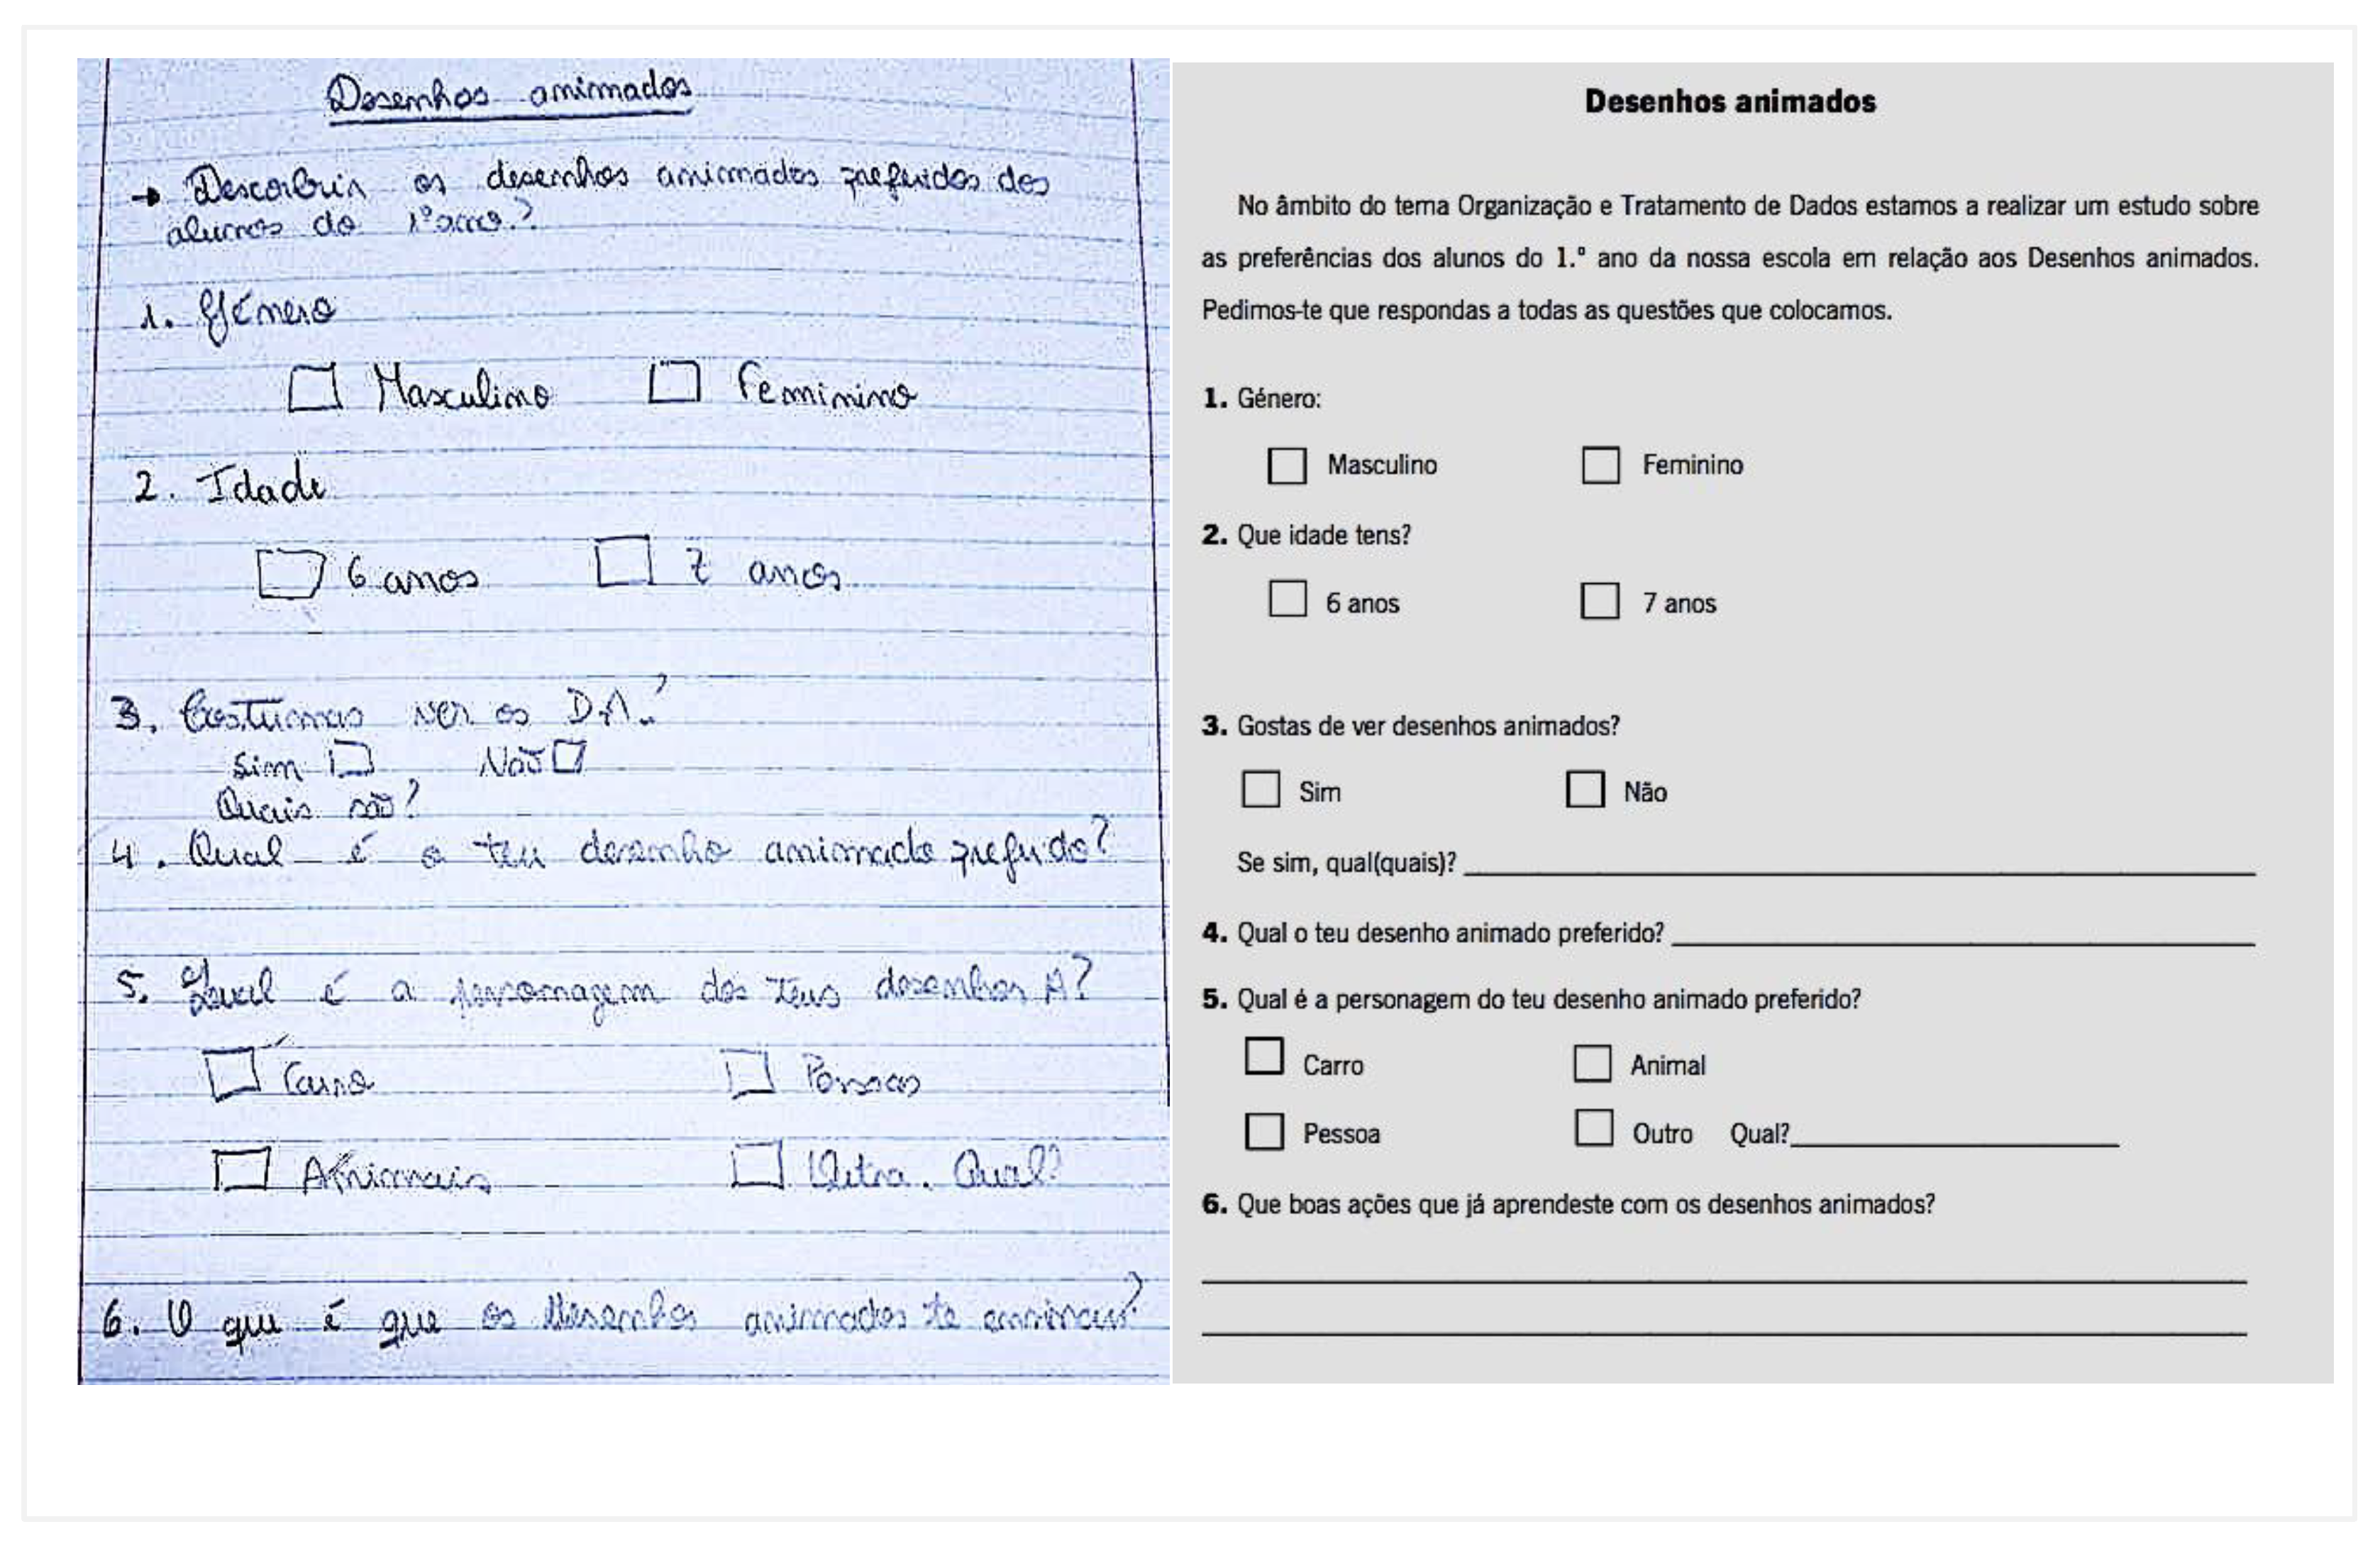 Desenhos animados
→ Descorbrir os desenhos animados preferidos dos
alunos do 1º ano?
1. Género
Masculino Feminino
2. Idade
6 anos 7 anos
3. Costumas ver os D.A.?
Sim Não
Quais são?
4. Qual é o teu desenho animado prefrido?
5. Qual é a personagem dos teus desenhos A?
Carro Pessoas
Animais Outra. Qual?
6. O que é que os desenhos animados te ensinam?
Desenhos animados
No âmbito do tema Organização e Tratamento de Dados estamos a realizar um estudo sobre
as preferências dos alunos do 1.º ano da nossa escola em relação aos Desenhos animados.
Pedimos-te que respondas a todas as questões que colocamos.
1. Género:
Masculino Feminino
2. Que idade tens?
6 anos 7 anos
3. Gostas de ver desenhos animados?
Sim Não
Se sim, qual(quais)?
4. Qual o teu desenho animado preferido?
5. Qual é a personagem do teu desenho animado preferido?
Carro Animal
Pessoa Outro Qual?
6. Que boas ações que já aprendeste com os desenhos animados?